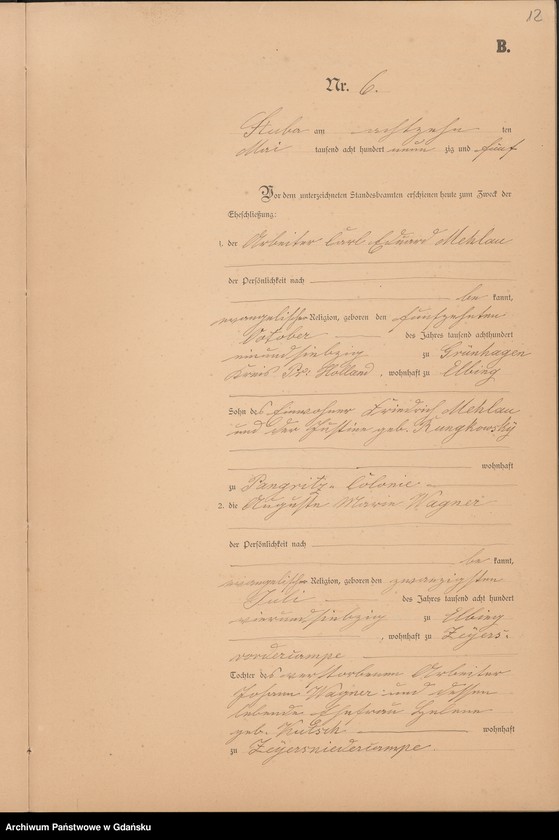 12
B.
Nr. 6.
Stuba am achtzehn ten
Mai tausend acht hundert neun zig und fünf
Vor dem unterzeichneten Standesbeamten erschienen heute zum Zweck der
Eheschließung:
1. der Arbeiter Carl Eduard Mehlau
der Persönlichkeit nach
be kannt,
evangelischer Religion, geboren den fünfzehnten
October des Jahres tausend achthundert
einundsiebzig zu Grünhagen
Kreis Pr. Holland, wohnhaft zu Elbing
Sohn des Einwohner Friedrich Mehlau
und der Justine geb. Rungkowsky
wohnhaft
zu Pangritz-Colonie
2. die Auguste Marie Wagner
der Persönlichkeit nach
be kannt,
evangelischer Religion, geboren den zwanzigsten
Juli des Jahres tausend acht hundert
vierundsiebzig zu Elbing
, wohnhaft zu Zeyers-
vordercampe
Tochter des verstorbenen Arbeiter
Johann Wagner und dessen
lebende Ehefrau Helene
geb. Kutsch wohnhaft
zu Zeyersniedercampe
Archiwum Państwowe w Gdańsku